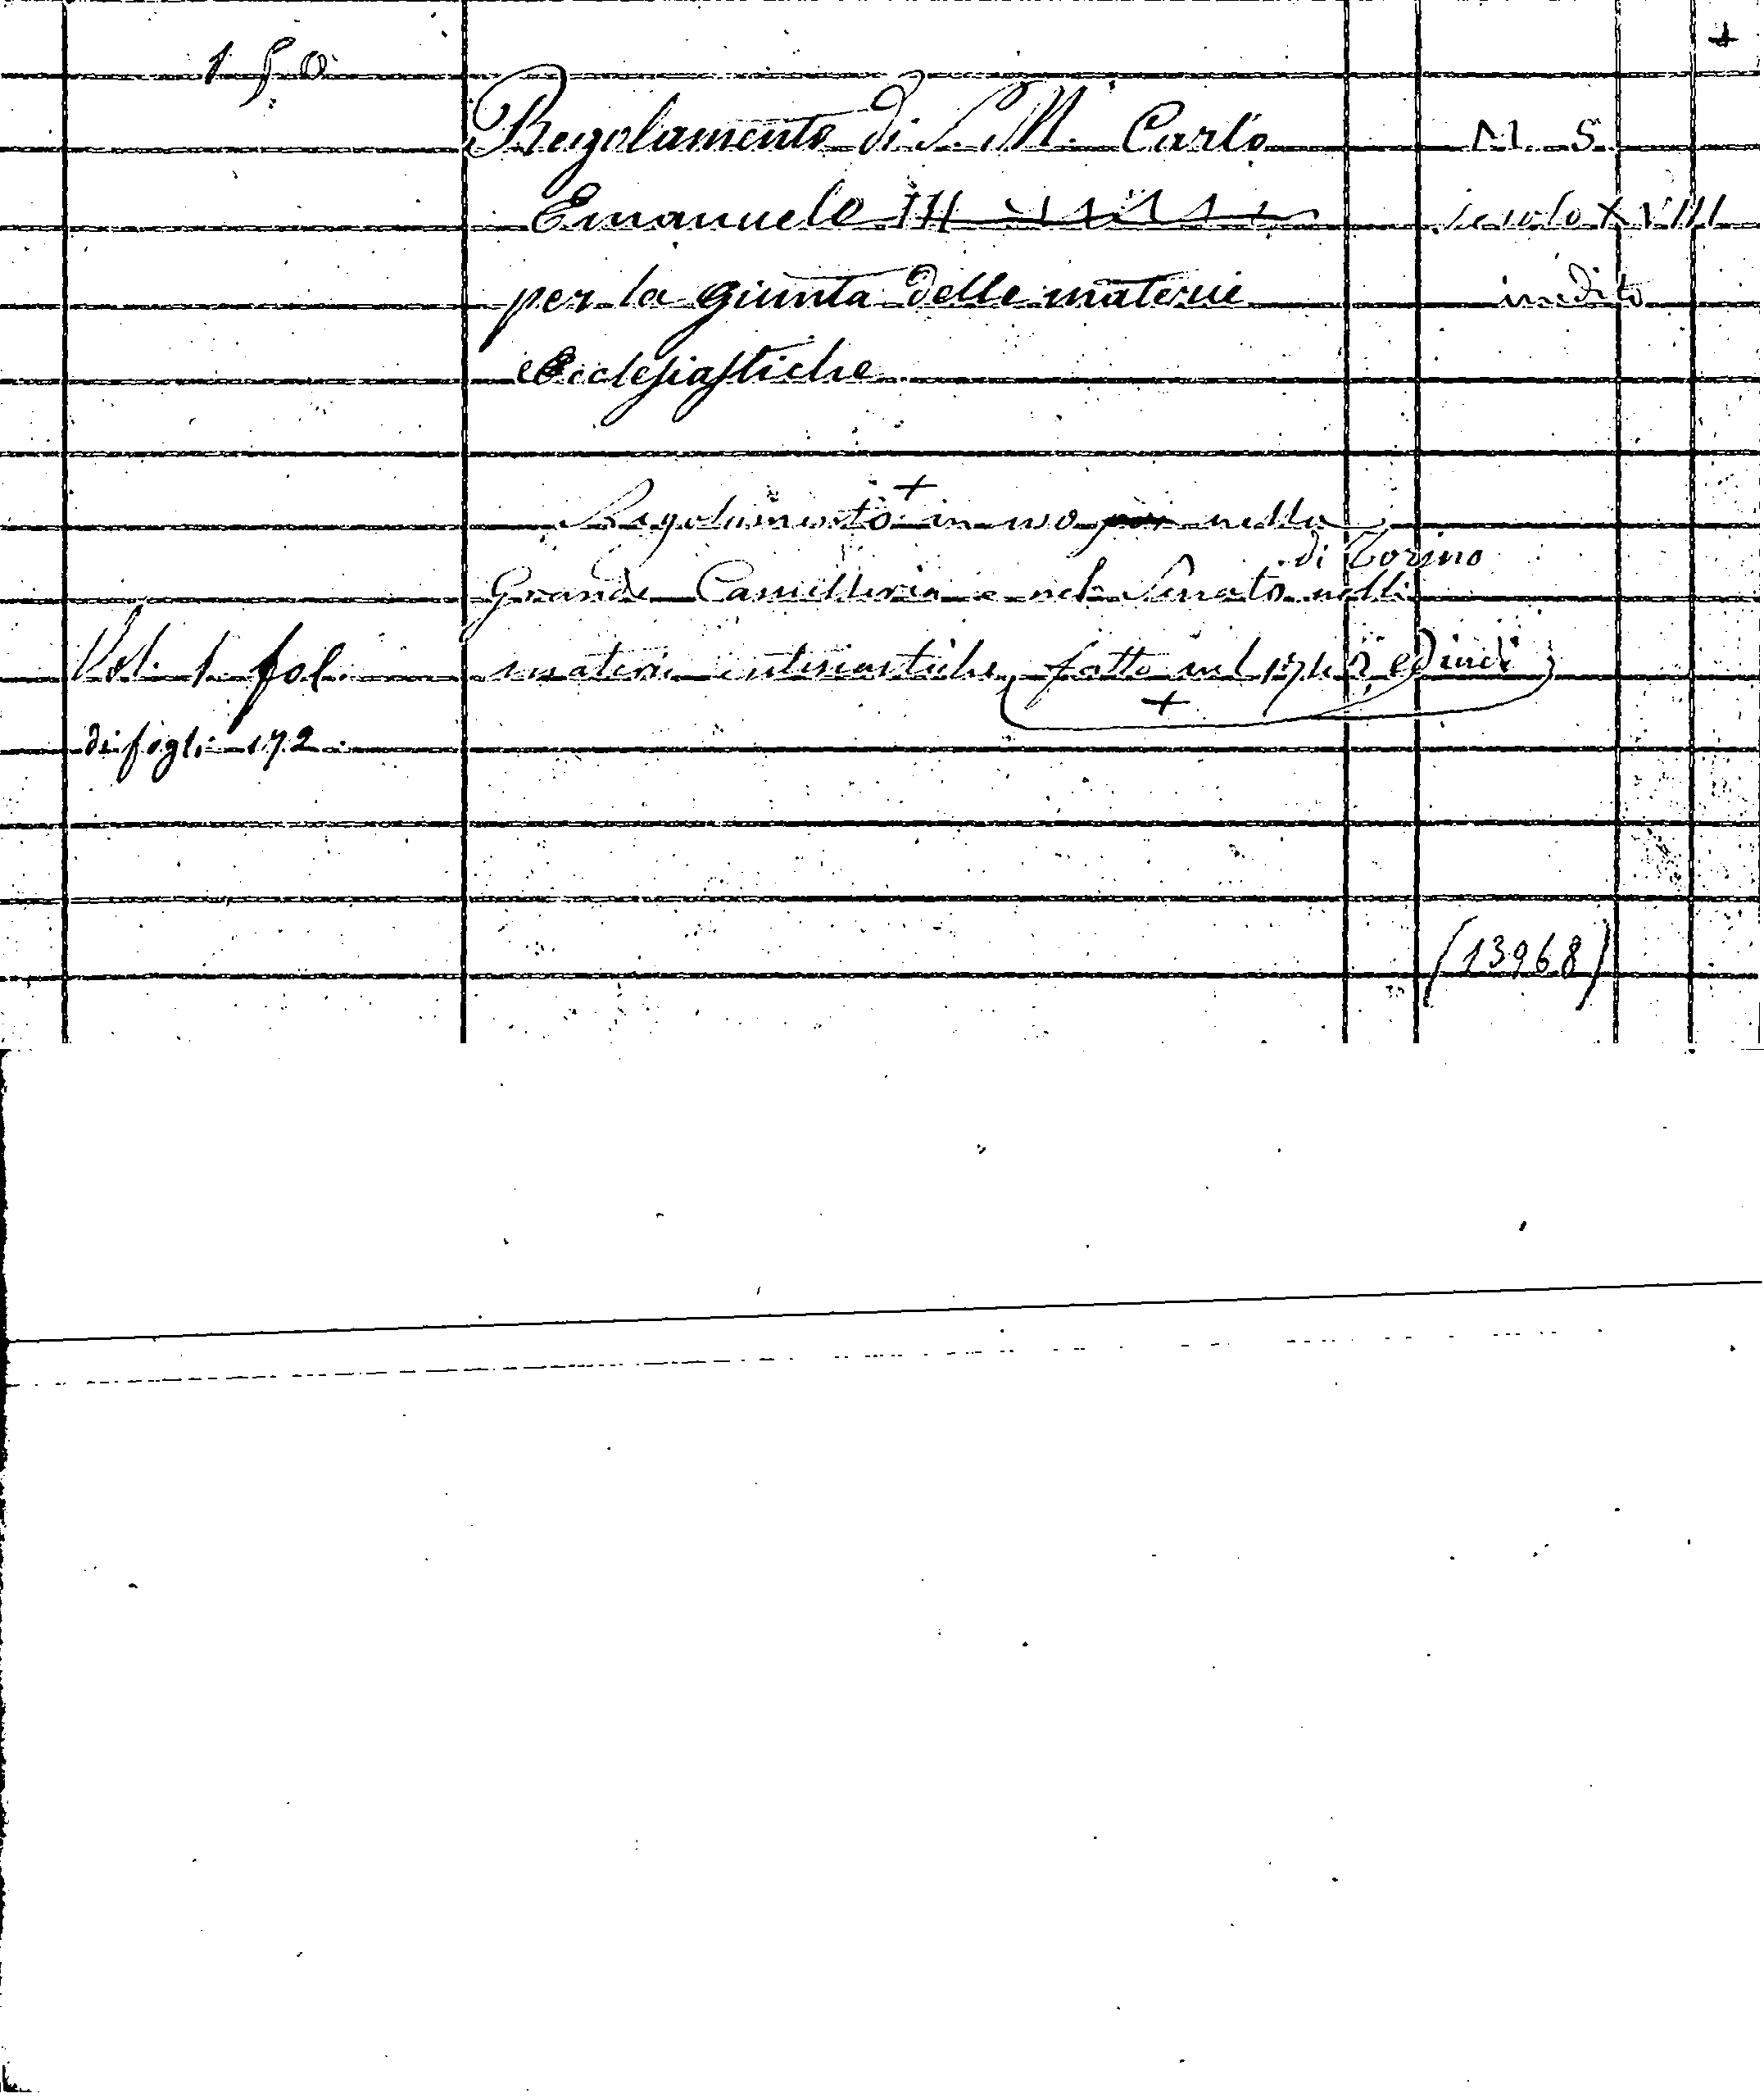 +
150
Regolamento di S. M. Carlo
M. S.
Emanuele III
secolo XVIII
per la giunta delle materie
inedito
Ecclesiastiche
+
Regolamento in uso nella
di Torino
Grande Cancelleria e nel Senato nelle
Vol. 1. fol.
materie ecclesiastiche, fatto nel 1742 ed indi
+
di fogli 172.
(13968)